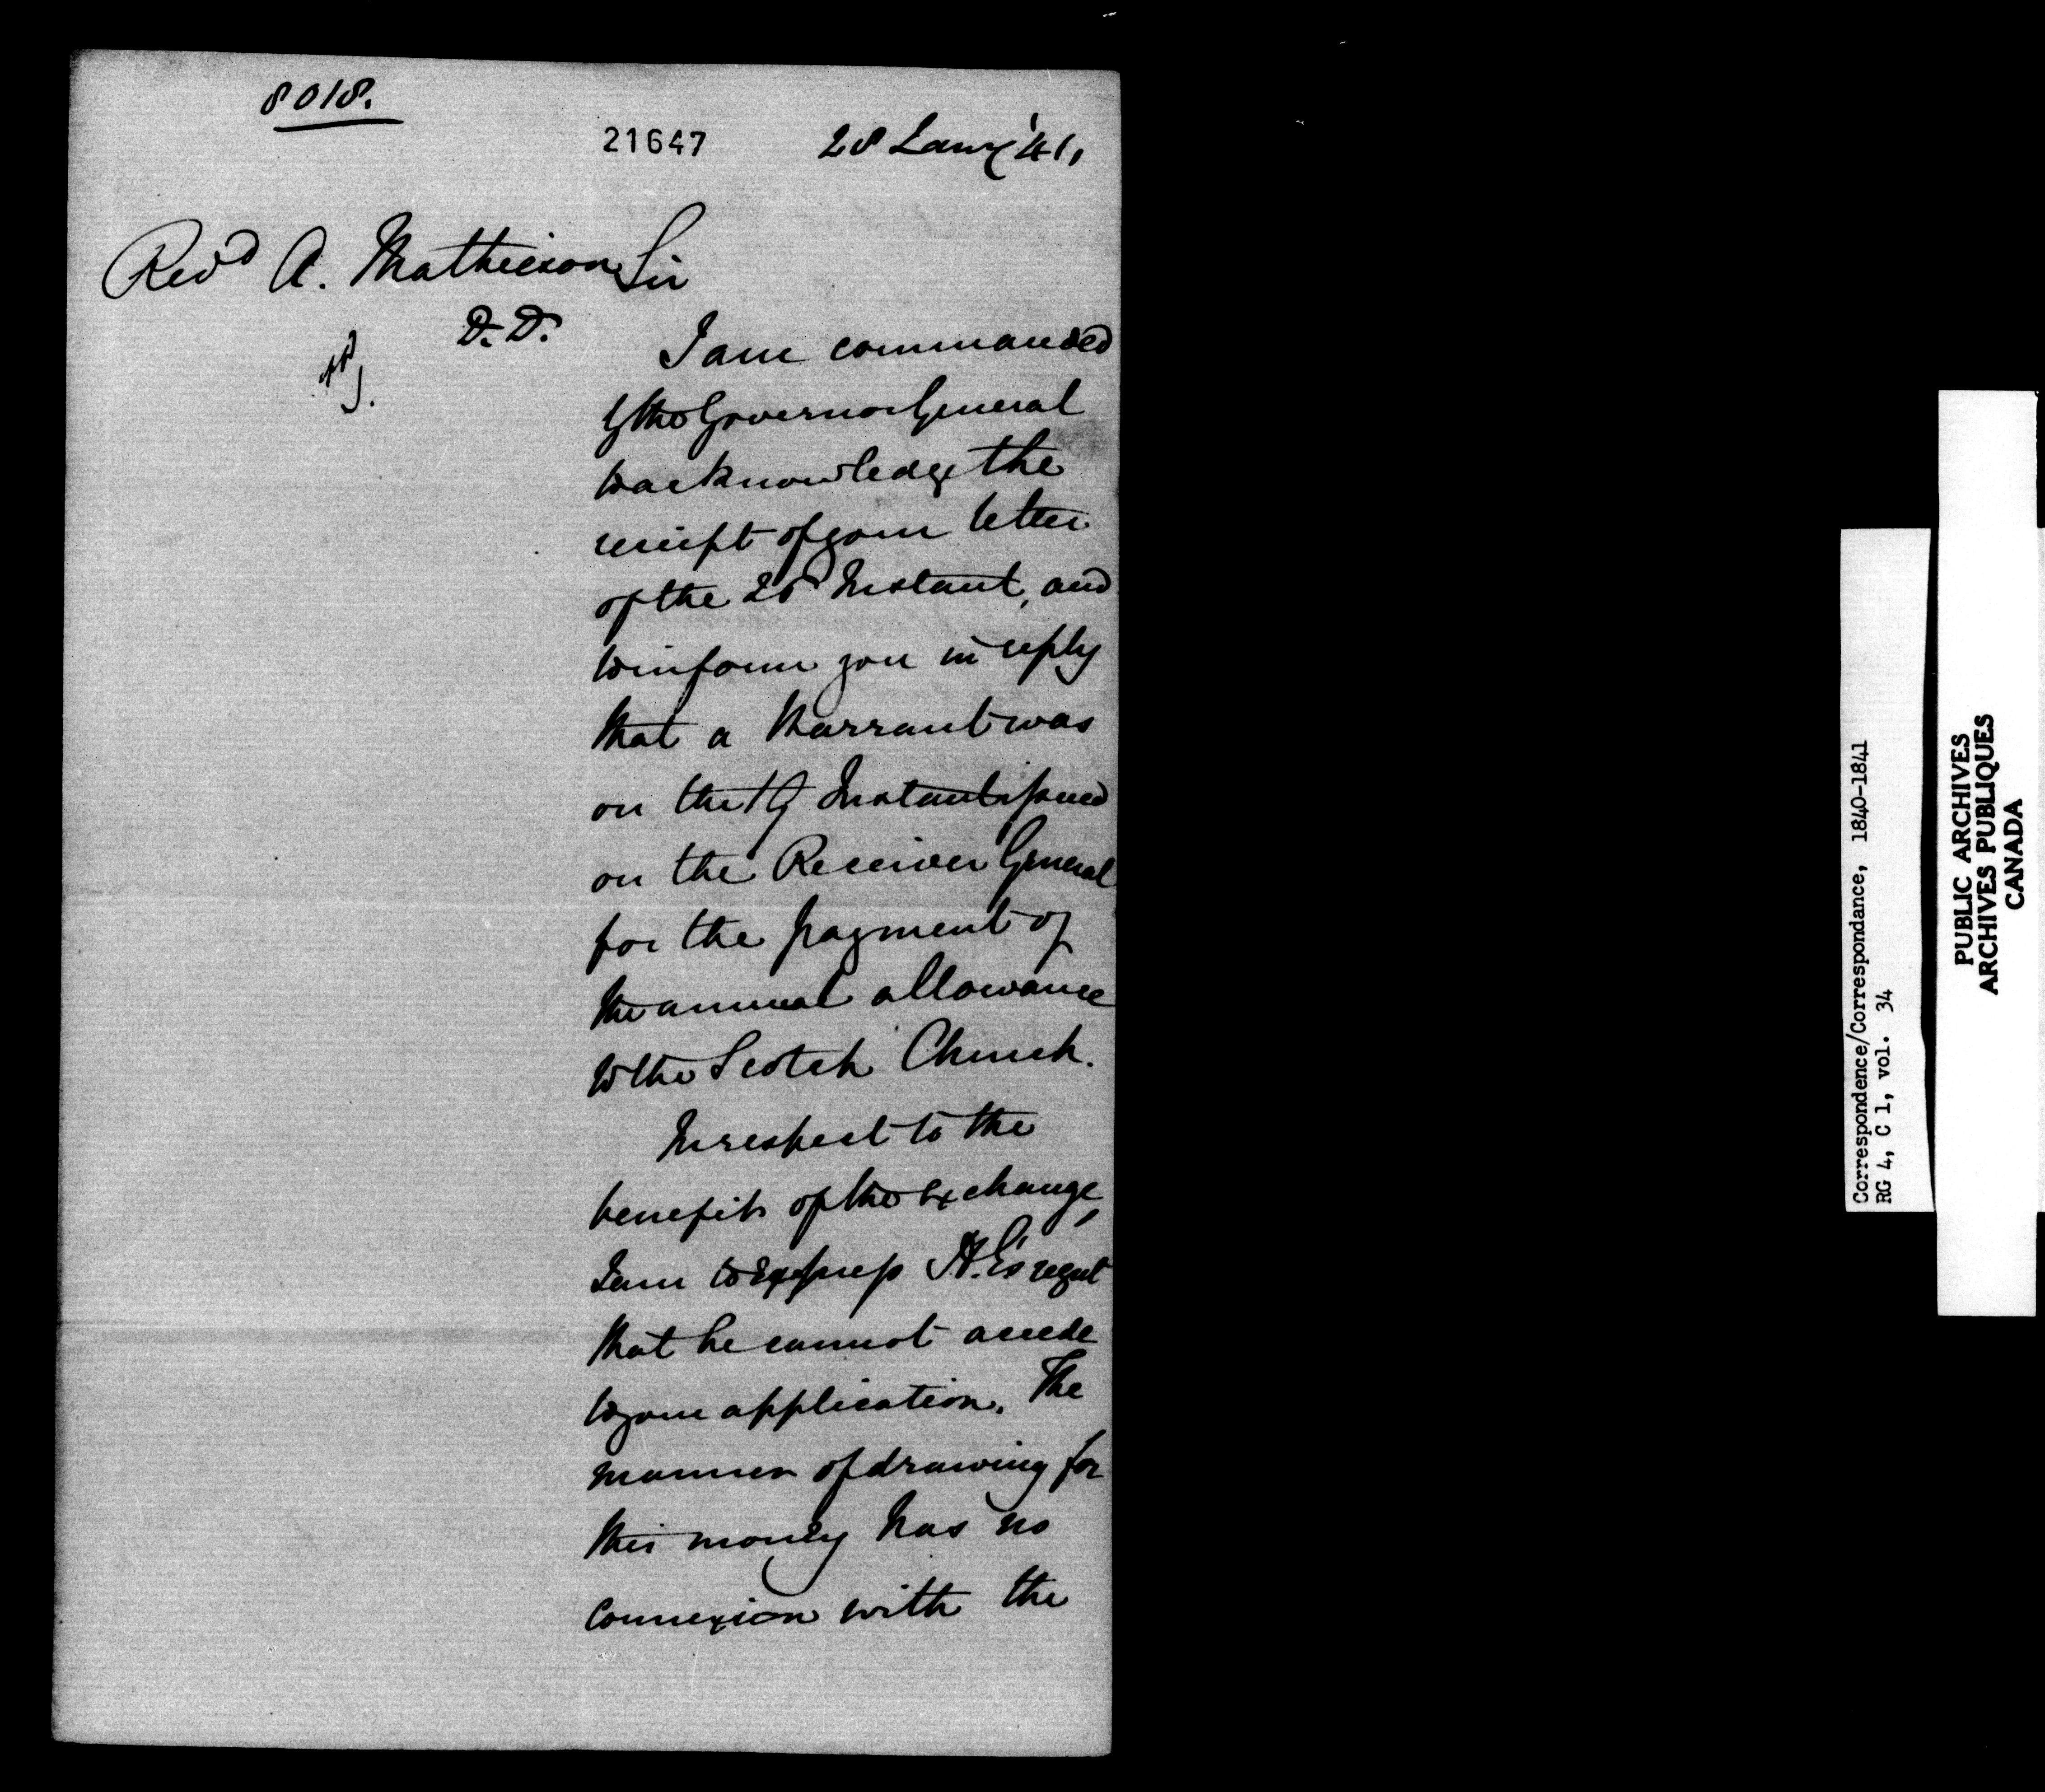 8018.
21647
28 Jany '41,
Revd A. Mathieson
D.D.
Sir
I am commanded
by the Governor General
to acknowledge the
receipt of your letter
of the 26 Instant, and
to inform you in reply
that a Warrant was
on the 19 Instant issued
on the Receiver General
for the payment of
the annual allowance
to the Scotch Church.
In respect to the
benefit of the exchange,
I am to express H.E's regret
that he cannot accede
to your application. The
manner of drawing for
this money has no
connexion with the
Correspondence/Correspondance, 1840-1841
RG 4, C 1, vol. 34
PUBLIC ARCHIVES
ARCHIVES PUBLIQUES
CANADA